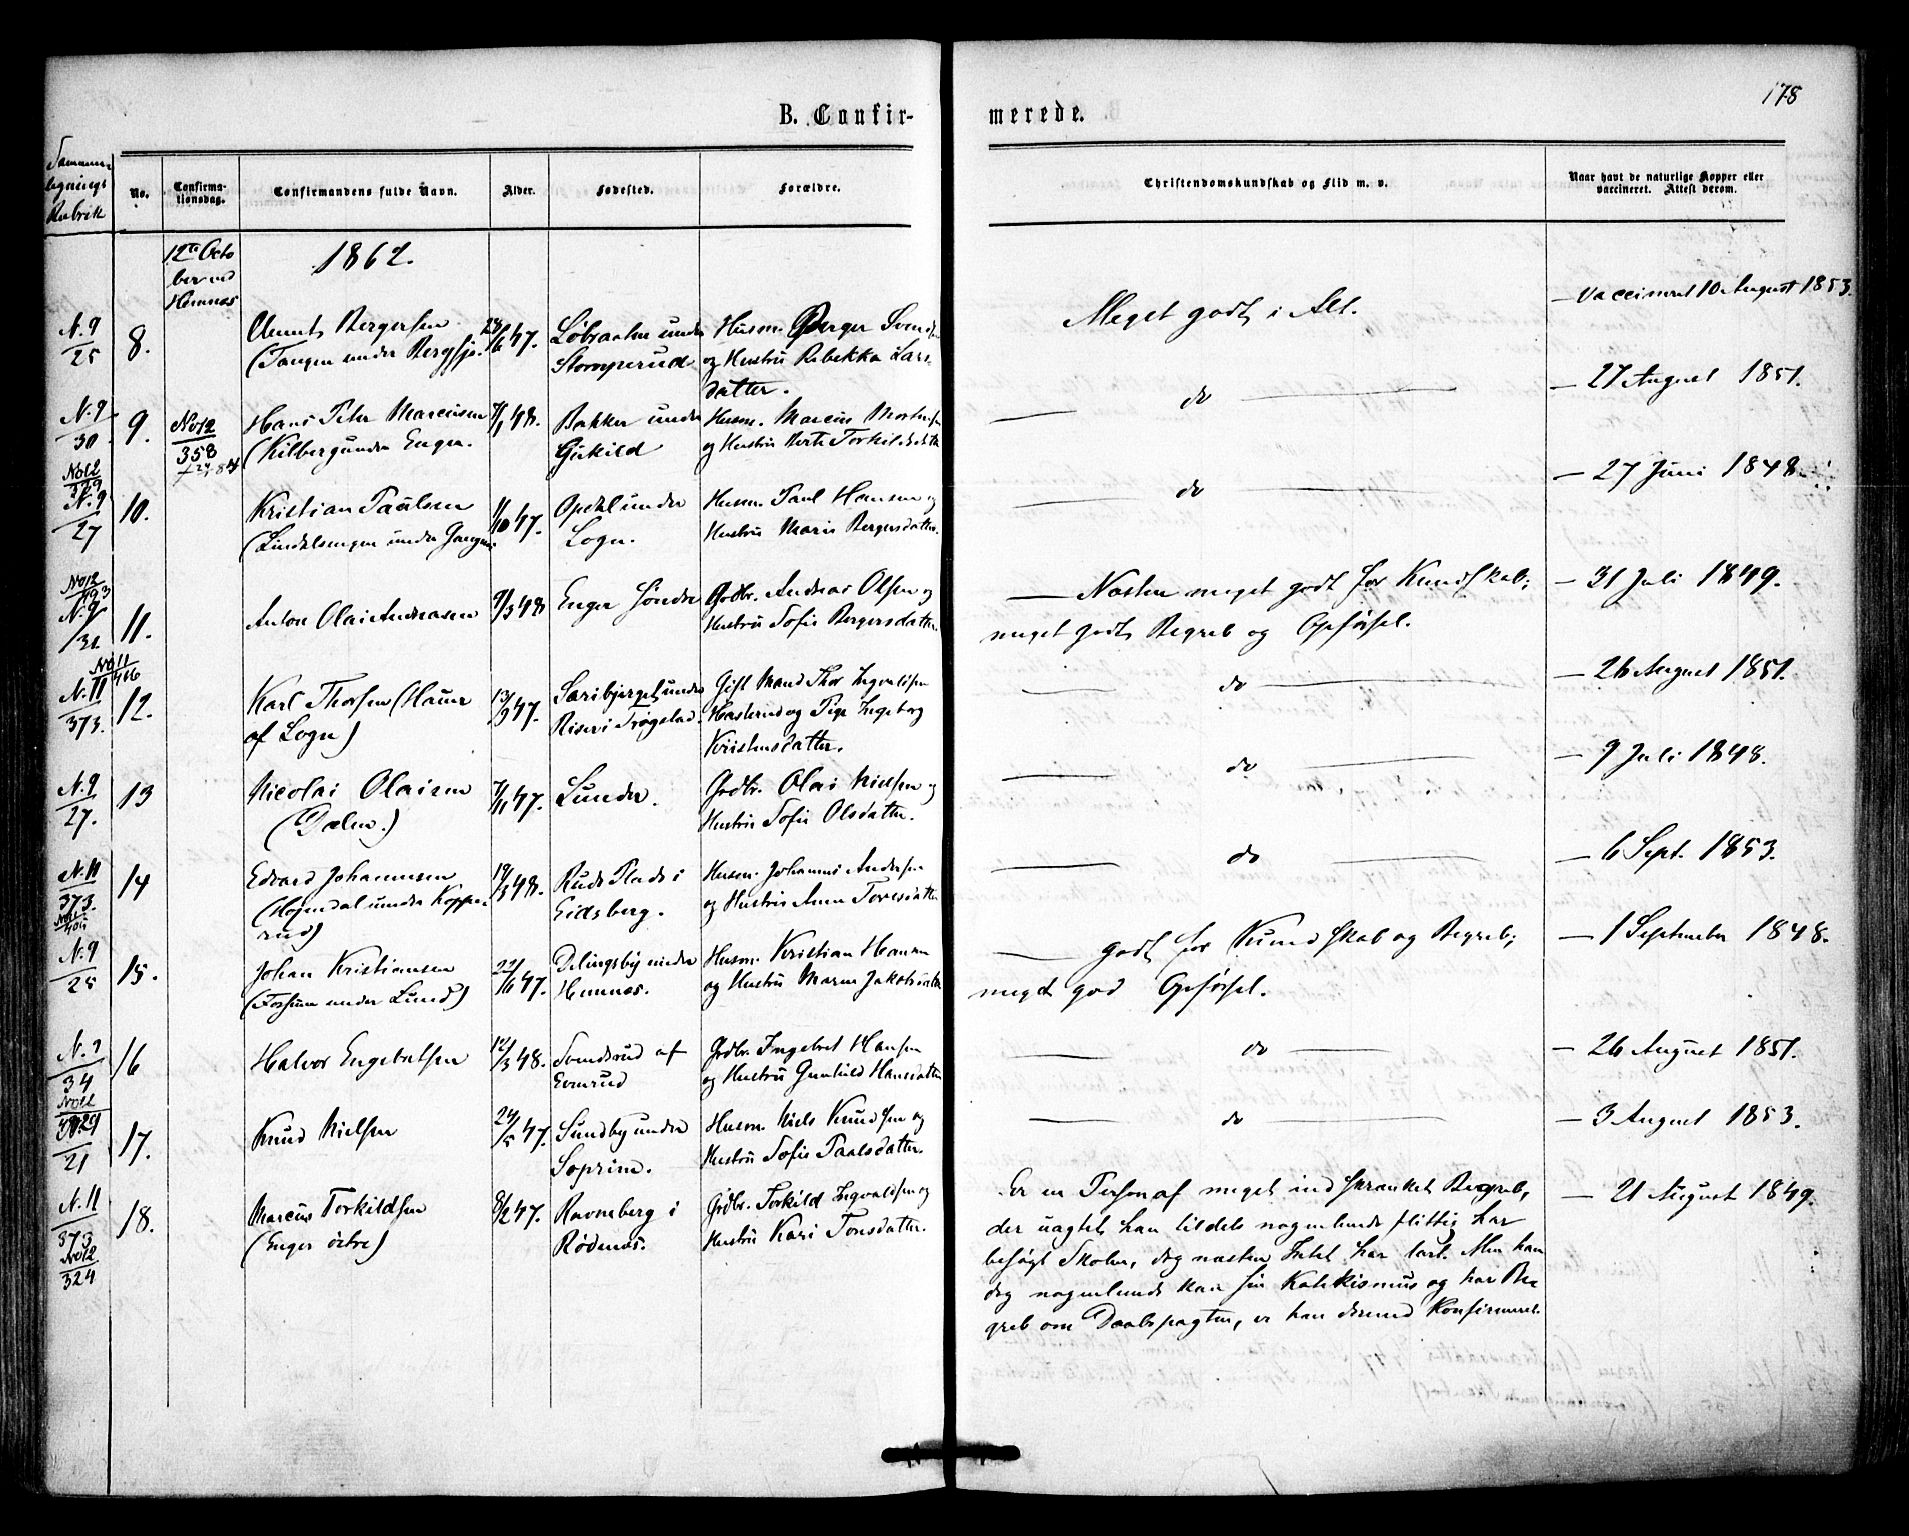 178
B. Confir-
merede.
Sammen-
lignings
Rubrik
No.
Confirma-
tionsdag.
Confirmandens fulde Navn.
Alder.
Fødested.
Forældre.
Christendomskundskab og Flid m. v.
Naar havt de naturlige Kopper eller
vaccineret. Attest derom.
12te Octo
ber ved
Hemnæs
1862.
N. 9
25
8.
Bergersen
(Tangen under Bergsjø.
47.
under
Stomperud
Husm. Berger
og Hustru Rebekka Lars-
datter.
Meget godt i Alt.
— Vaccineret 10 August 1853.
N. 9
30
9.
No 12
358
Hans Peter Marcusen
(Kilberg under Enger.
7/1 48.
Bakker under
Gukild
Husm. Marcus
og Hustru Berte
— do —
— 27 August 1851.
No 12
N. 9
27
10.
Kristian Paulsen
(under
1/10 47.
under
Sogn.
Husm. Paul Hansen og
Hustru Maria Bergersdatter.
— do —
— 27 Juni 1848
No 12
N. 9
31.
11.
Anton Olai Andreasen
9/3 48
Enger Søndre
Grdbr. Andreas Olsen og
Hustru Sofie Bergersdatter.
— Næsten meget godt for Kundskab;
meget godt Begreb og Opførsel.
— 31 Juli 1849.
No 11
416
N. 11
373.
12.
Karl Thorsen (Hauer
af Sogn)
13/9 47.
under
i Trøgstad.
Gift Mand Thor
og Pige Ingeborg
Kristensdatter.
— do —
— 26 August 1851.
N. 9
27.
13
Nicolai Olaisen
(Dælen.)
7/11 47.
Lunder.
Grdbr. Olai Nielsen og
Hustru Sofie Olsdatter.
— do —
— 9 Juli 1848.
N. 11
373.
14
Edvard Johannesen
(Højendal under Kopper
rud)
19/3 48.
Ruds Plads i
Eidsberg.
Husm. Johannes Andersen
og Hustru Anne Toresdatter
— do —
— 6 Sept. 1853.
N. 9
25
15.
Johan Kristiansen
(Forsum under Lund)
47.
Delingsby under
Hemnæs.
Husm. Kristian Hansen
og Hustru Maren Jakobsdatter
— godt for Kundskab og Begreb;
meget god Opførsel.
— 1 September 1848.
N. 9
34
16
Halvor Engebretsen
12/3 48.
Svendsrud af
Husm. Ingebret Hansen
og Hustru Gunhild Hansdatter
— do —
— 26 August 1851.
21
17.
Knud Nielsen
24/5 47.
Sundby under
Soprim.
Husm. Niels Knudsen og
Hustru Sofie Paalsdatter.
— do —
— 3 August 1853.
N. 11
373
No 12
324
18.
Marcus Torkildsen
(Enger østre)
8/2 47.
Ravneberg i
Rødenæs.
Grdbr. Torkild Ingvaldsen og
Hustru Kari Tonsdatter.
Er en Person af meget indskrænket Begreb,
der uagtet han tildels nogenlunde flittig har
besøgt Skolen, dog næsten Intet har lært. Men han
dog nogenlunde kan sin Katekismus og har Be
greb om Daabspagten, er han dermed Konfirmeret.
— 21 August 1849.